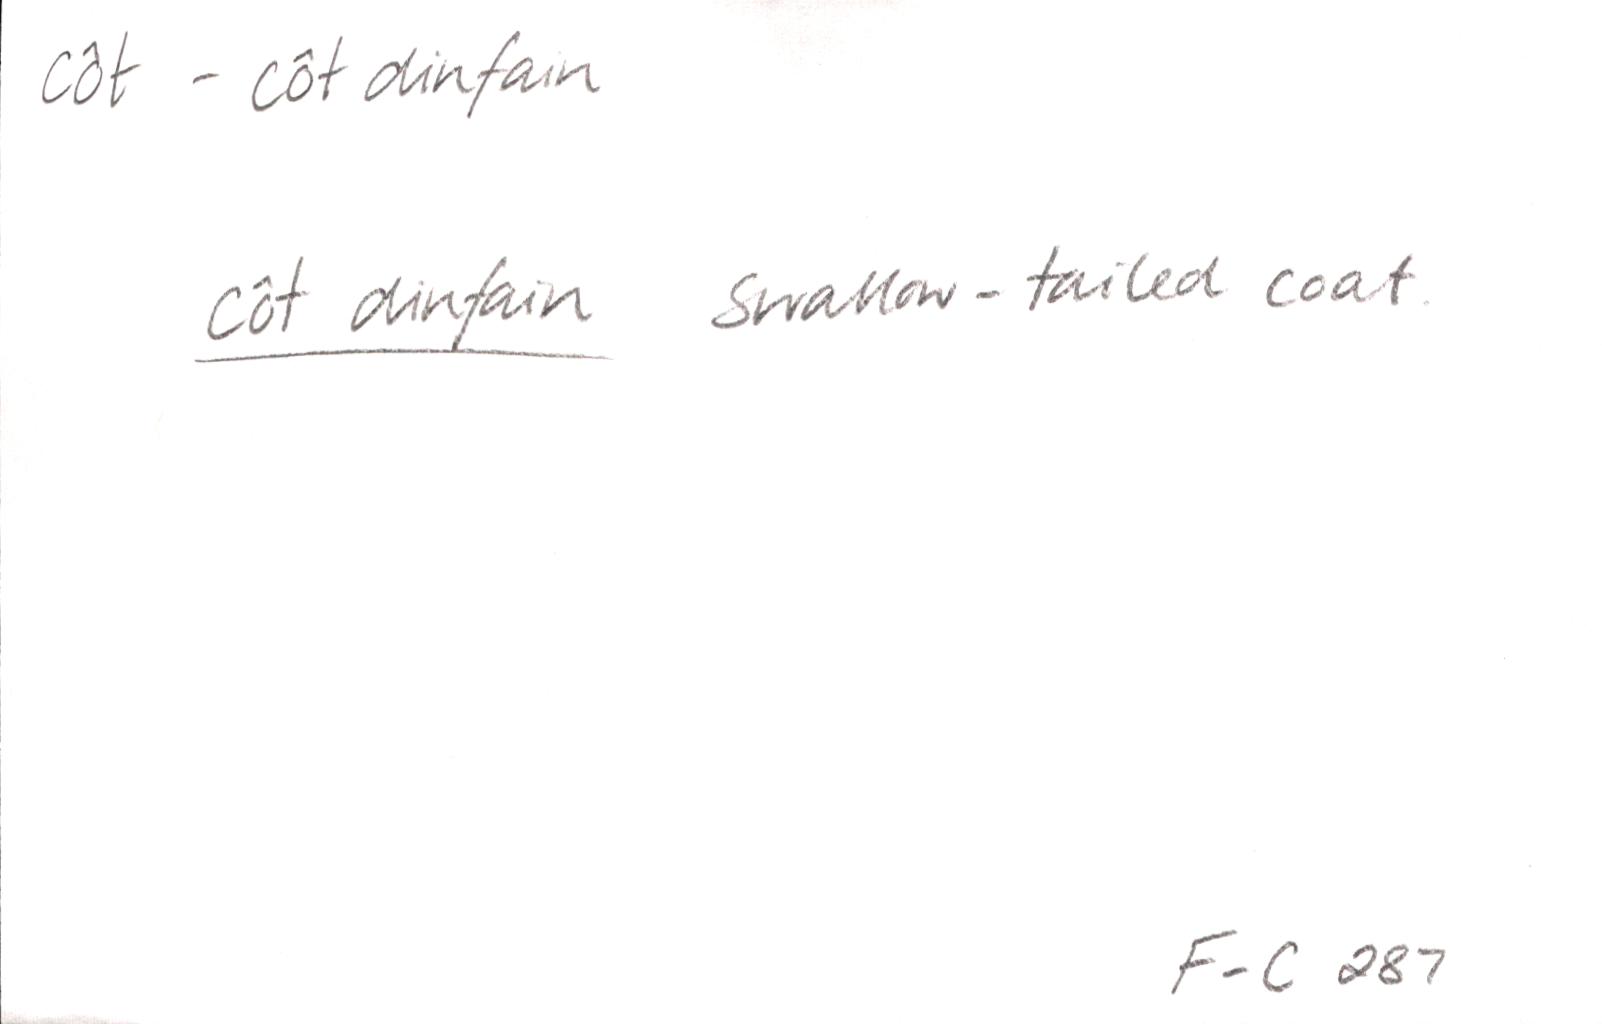 côt - côt dinfain
côt dinfain swallow-tailed coat.
F-C 287